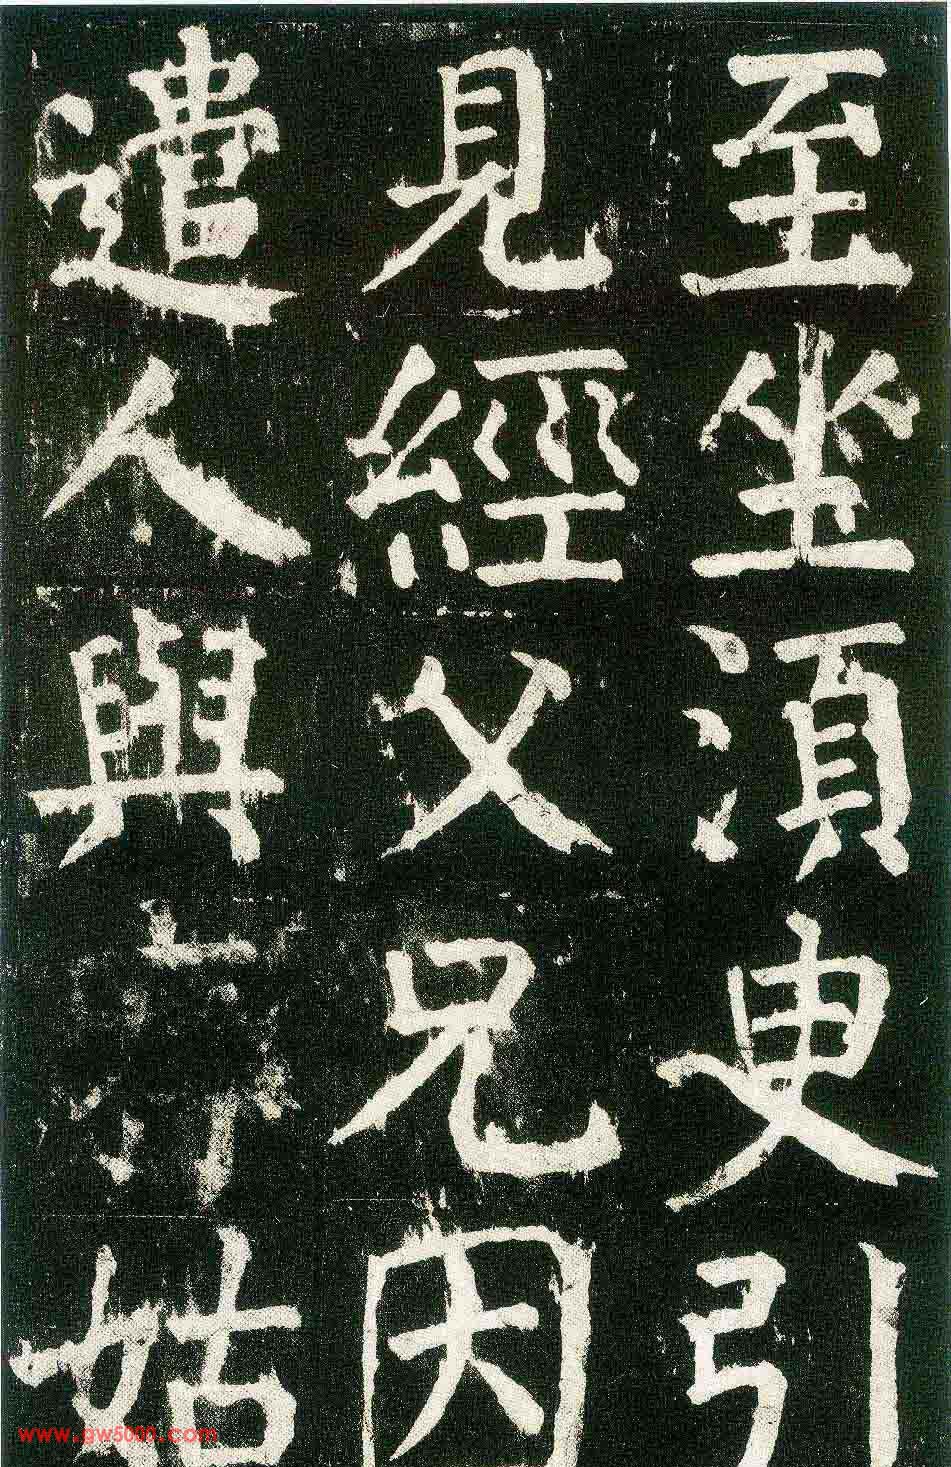 至坐湏臾引
見經父兄因
遣人與姑
www.gw5000.com